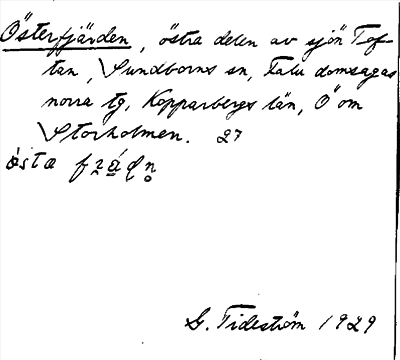 Österfjärden, östra delen av sjön Tof-
tan, Sundborns sn, Falu domsagas
norra tg, Kopparbergs län, Ö om
Storholmen. 27
G. Tideström 1929